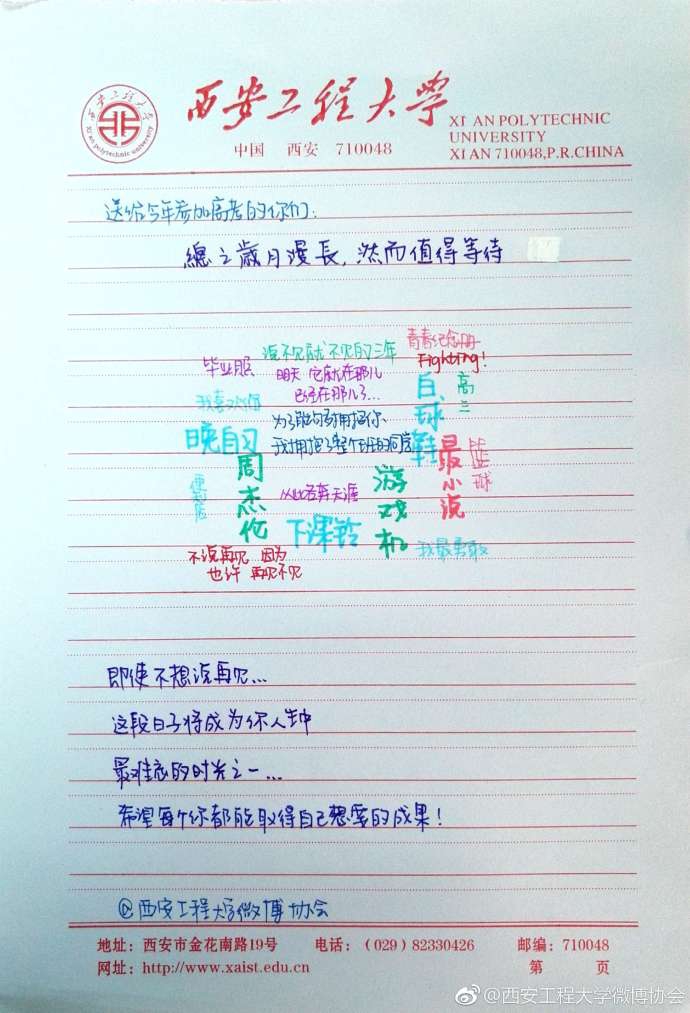 西安工程大学
XI AN POLYTECHNIC
UNIVERSITY
XI AN 710048,P.R.CHINA
中国 西安 710048
西安工程大学
Xi'an polytechnic university
送给今年参加高考的你们:
總之歲月漫長,然而值得等待
青春纪念册
Fighting!
毕业照
说不见就不见的三年
明天 它就在那儿
已经在那儿了...
白球鞋
高三
我喜欢你
为了能够拥抱你
我拥抱了整个班的同学
晚自习
周杰伦
便利店
从此各奔天涯
游戏机
最小说
篮球
下课铃
我最勇敢
不说再见 因为
也许 再见不见
即使不想说再见...
这段日子将成为你人生中
最难忘的时光之一...
希望每个你都能取得自己想要的成果!
@西安工程大学微博协会
地址:西安市金花南路19号 电话:(029)82330426 邮编:710048
网址:http://www.xaist.edu.cn 第 页
@西安工程大学微博协会